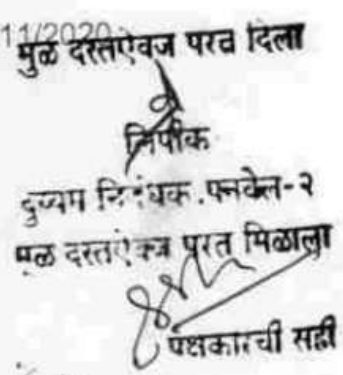 11/2020
मुळ दस्तऐवज परत दिला
लिपीक
दुय्यम निबंधक. पनवेल-२
मुळ दस्तऐवज परत मिळाला
पक्षकारची सही